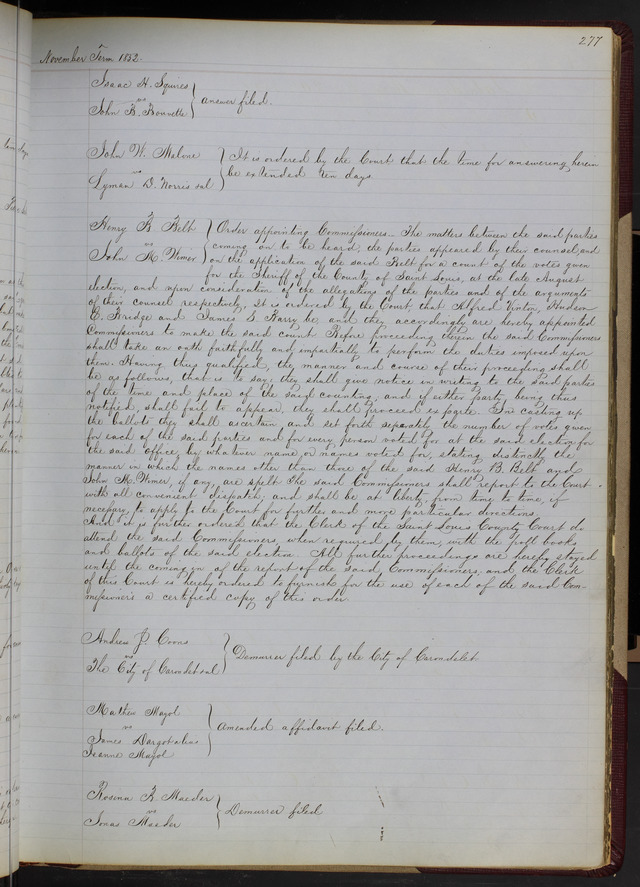 277
November Term 1852.
Isaac H. Squires
vs
John B. Bouvette
answer filed.
John W. Malone
vs
Lyman D. Norris et al
It is ordered by the Court that the time for answering herein
be extended ten days.
Henry B. Belt
vs
John M. Wimer
Order appointing Commissioners — The matters between the said parties
coming on to be heard, the parties appeared by their counsel, and
on the application of the said Belt for a count of the votes given
for the Sheriff of the County of Saint Louis, at the late August
election, and upon consideration of the allegations of the parties and of the arguments
of their counsel respectively, It is ordered by the Court, that Alfred Vinton, Hudson
E. Bridge and James E. Barry be, and they accordingly are hereby appointed
Commissioners to make the said count. Before proceeding therein the said Commissioners
shall take an oath faithfully and impartially to perform the duties imposed upon
them. Having thus qualified, the manner and course of their proceeding shall
be as follows, that is to say; they shall give notice in writing to the said parties
of the time and place of the said counting, and if either party, being thus
notified, shall fail to appear, they shall proceed exparte. In casting up
the ballots they shall ascertain and set forth separately the number of votes given
for each of the said parties and for every person voted for at the said election for
the said office, by whatever name or names voted for, stating distinctly the
manner in which the names other than those of the said Henry B. Belt and
John M. Wimer, if any, are spelt. The said Commissioners shall report to the Court
with all convenient despatch, and shall be at liberty, from time to time, if
necessary to apply to the Court for further and more particular directions.
And it is further ordered that the Clerk of the Saint Louis County Court do
attend the said Commissioners, when required by them, with the poll books
and ballots of the said election. All further proceedings are hereby stayed
until the coming in of the report of the said Commissioners, and the Clerk
of this Court is hereby ordered to furnish for the use of each of the said Com-
missioners a certified copy of this order.
Andrew J. Coons
vs
The City of Carondelet et al
Demurrer filed by the City of Carondelet
Mathew Mayol
vs
James Dargot alias
Jeanne Mayol
amended affidavit filed.
Rosena K. Maeder
vs
Jonas Maeder
Demurrer filed